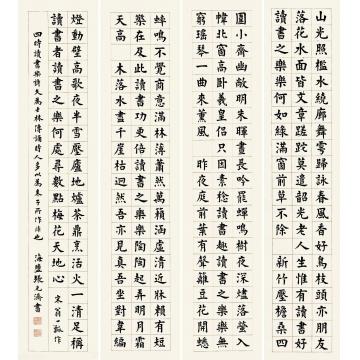 山光照檻水繞廊舞雩歸詠春風香好鳥枝頭亦朋友
落花水面皆文章蹉跎莫遣韶光老人生惟有讀書好
讀書之樂樂何如綠滿窗前草不除 新竹壓檐桑四
圍小齋幽敞明朱曦晝長吟罷蟬鳴樹夜深燼落螢入
幃北窗高臥羲皇侶只因素稔讀書趣讀書之樂樂無
窮瑤琴一曲來薰風 昨夜庭前葉有聲籬豆花開蟋
蟀鳴不覺商意滿林薄蕭然萬籟涵虛清近牀賴有短
檠在及此讀書功更倍讀書之樂樂陶陶起弄明月霜
天高 木落水盡千崖枯迥然吾亦見真吾坐對韋編
燈動壁高歌夜半雪壓廬地爐茶鼎烹活火一清足稱
讀書者讀書之樂何處尋數點梅花天地心 宋翁一瓢作
四時讀書樂詩久為士林傳誦時人多以為朱子所作非也 海鹽張元濟書